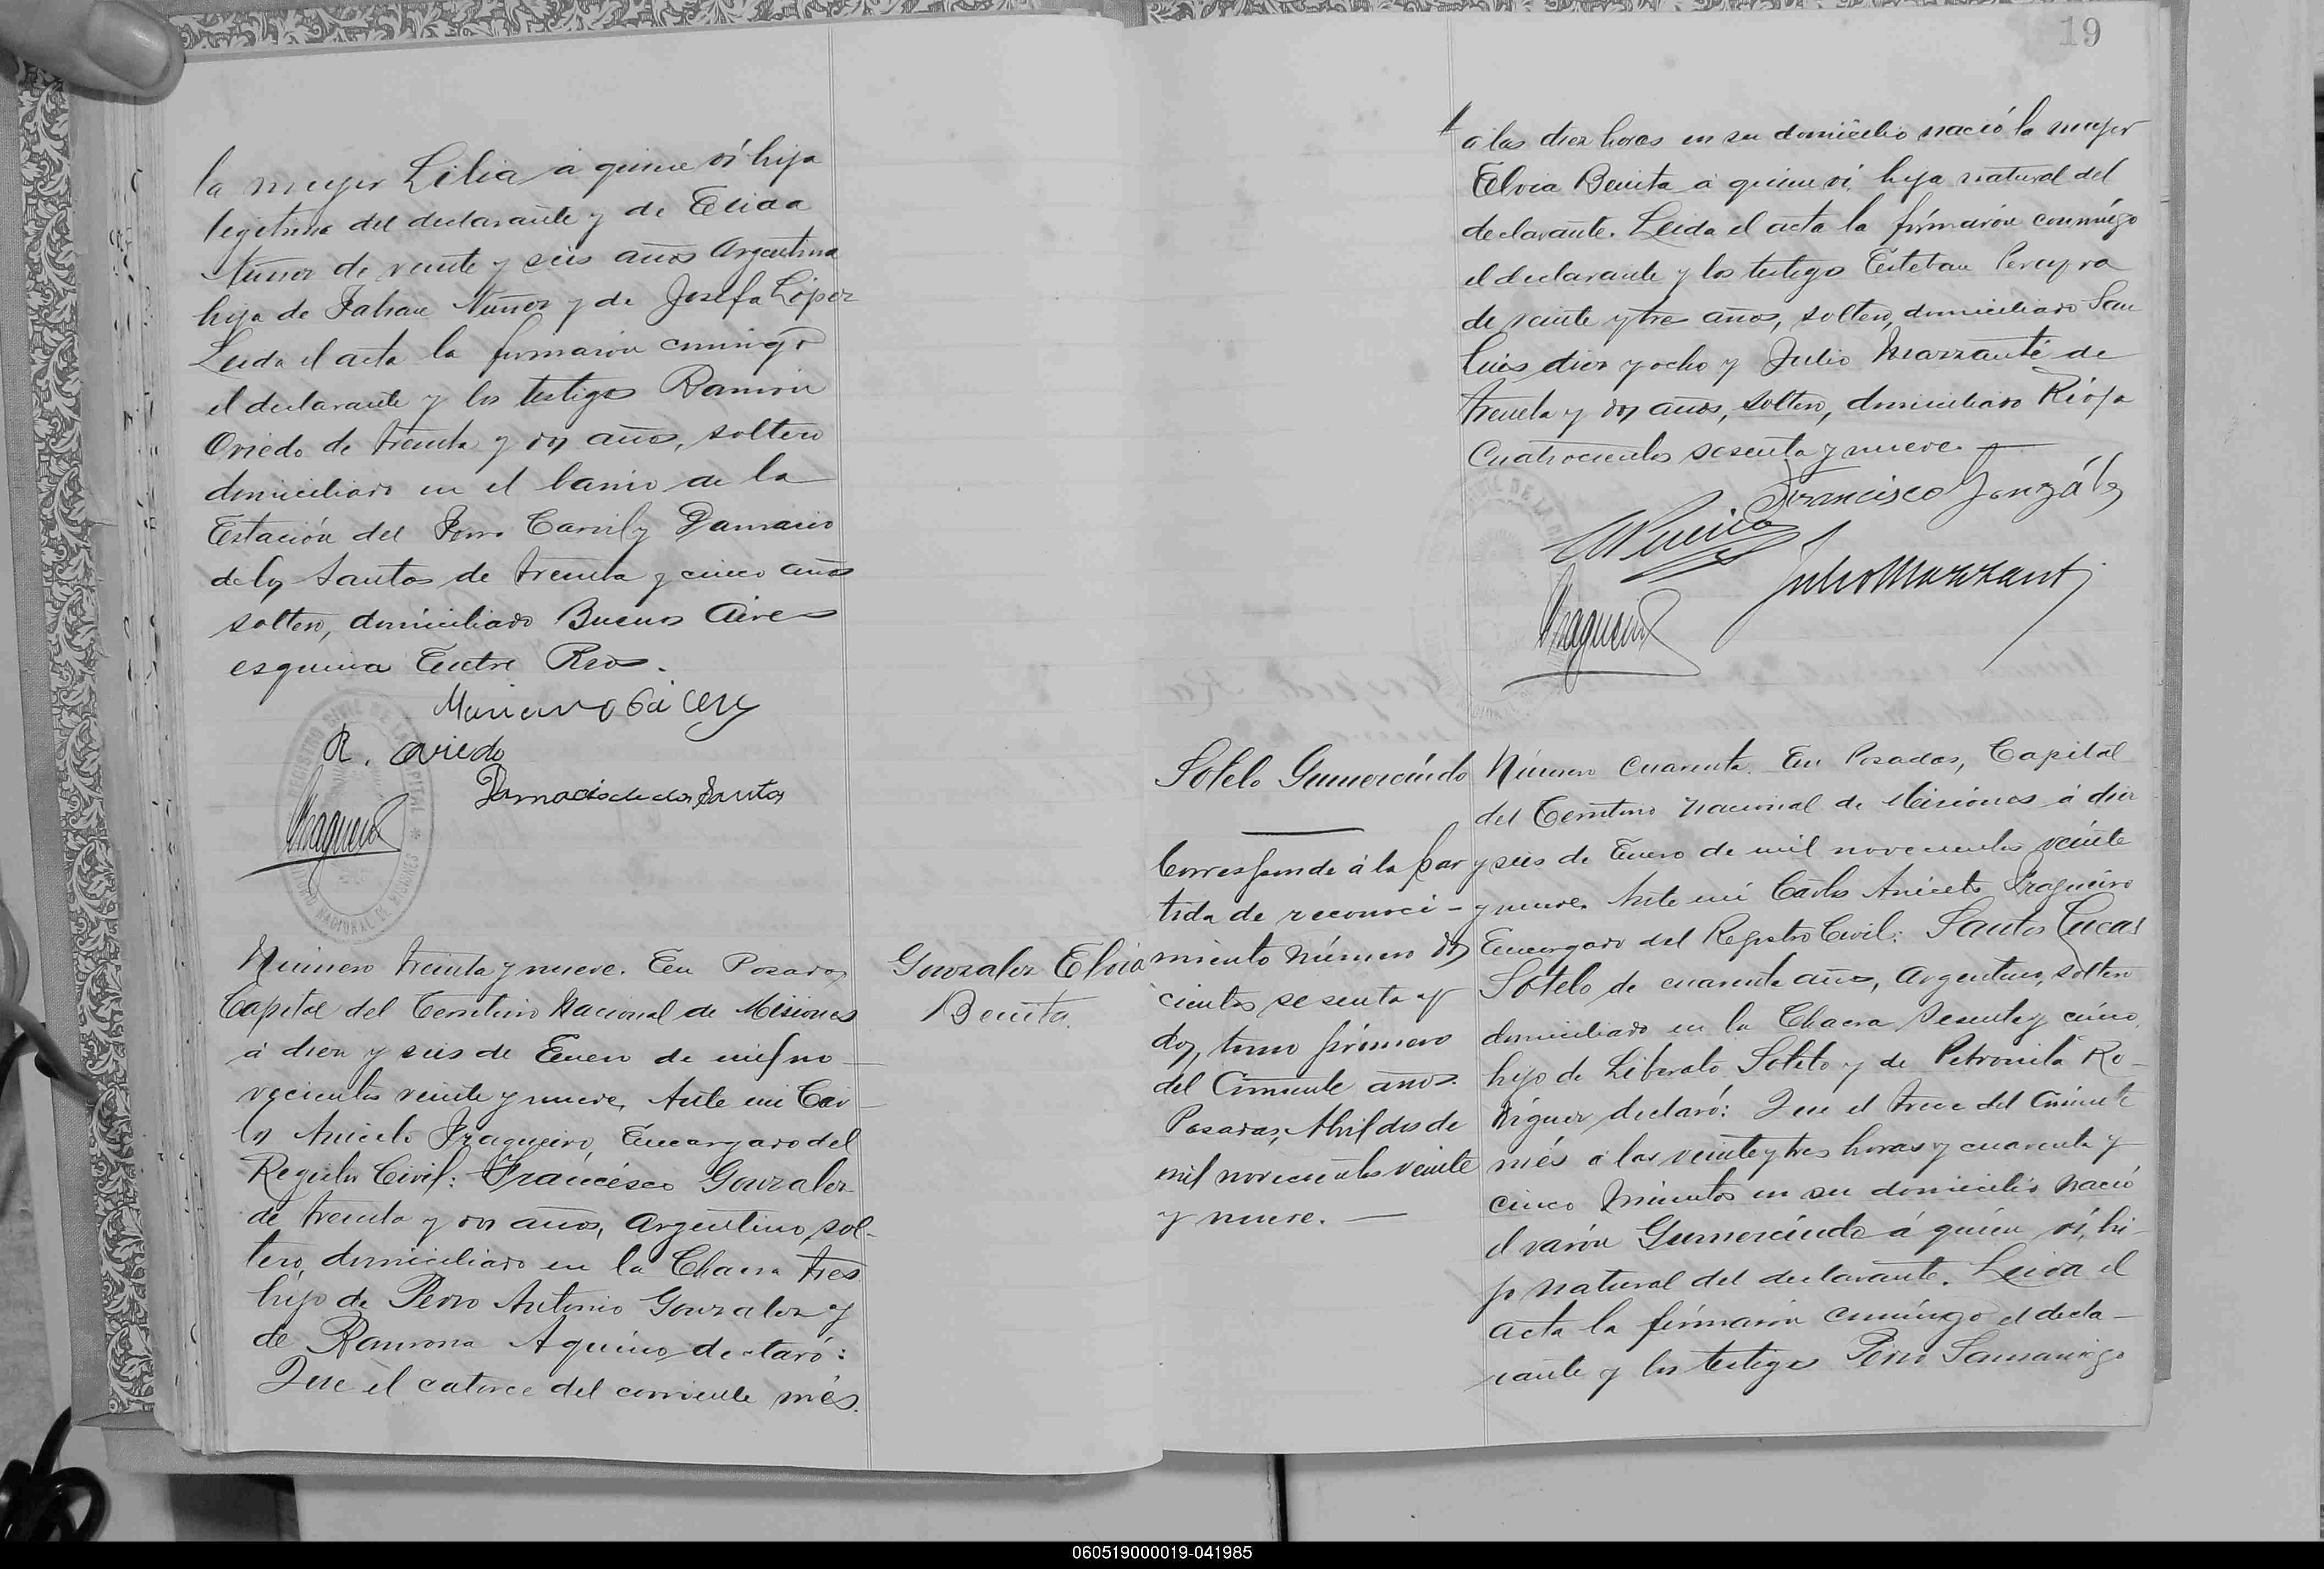 la mujer Lilia á quien ví hija
legítima del declarante y de Elida
Nuñez de veinte y seis años Argentina
hija de Fabian Nuñez y de Josefa López
Leida el acta la firmaron conmigo
el declarante y los testigos Ramón
Oviedo de treinta y dos años, soltero
domiciliado en el barrio de la
Estación del Ferro Carril y Damacio
de los Santos de treinta y cinco años
soltero, domiciliado Buenos Aires
esquina Entre Rios.
Mariano
R. Oviedo
Damacio de los Santos
REGISTRO CIVIL DE LA CAPITAL
TERRITORIO NACIONAL DE MISIONES
Fragueiro
Gonzalez Elvia
Benita.
Número treinta y nueve. En Posadas
Capital del Territorio Nacional de Misiones
á diez y seis de Enero de mil no-
vecientos veinte y nueve, Ante mi Car-
los Aniceto Fragueiro, Encargado del
Registro Civil: Francisco Gonzalez
de treinta y dos años, Argentino, sol-
tero, domiciliado en la Chacra tres
hijo de Pedro Antonio Gonzalez y
de Ramona Aquino declaró:
Que el catorce del corriente més.
19
á las diez horas en su domicilio nació la mujer
Elvia Benita á quien ví, hija natural del
declarante. Leida el acta la firmarón conmigo
el declarante y los testigos Esteban Pereyra
de veinte y tres años, soltero, domiciliado San
Luis diez y ocho y Julio Mazzanti de
treinta y dos años, soltero, domiciliado Rioja
Cuatrocientos sesenta y nueve.
Francisco Gonzáles
Julio Mazzanti
Fragueiro
Sotelo Gumercindo
Corresponde á la par
tida de reconoci-
miento número dos
cientos sesenta y
dos, tomo primero
del Corriente año.
Posadas, Abril dos de
mil novecientos veinte
y nueve.
Número cuarenta. En Posadas, Capital
del Territorio Nacional de Misiones á diez
y seis de Enero de mil novecientos veinte
y nueve. Ante mi Carlos Aniceto Fragueiro
Encargado del Registro Civil: Santos Lucas
Sotelo de cuarenta años, Argentino, soltero
domiciliado en la Chacra Sesenta y cinco,
hijo de Liberato Sotelo y de Petronila Ro-
driguez declaró: Que el trece del Corriente
més á las veinte y tres horas y cuarenta y
cinco minutos en su domicilio nació
el varón Gumercindo á quien ví, hi-
jo natural del declarante. Leida el
acta la firmarón conmigo el decla-
rante y los testigos Pedro Samaniego
060519000019-041985